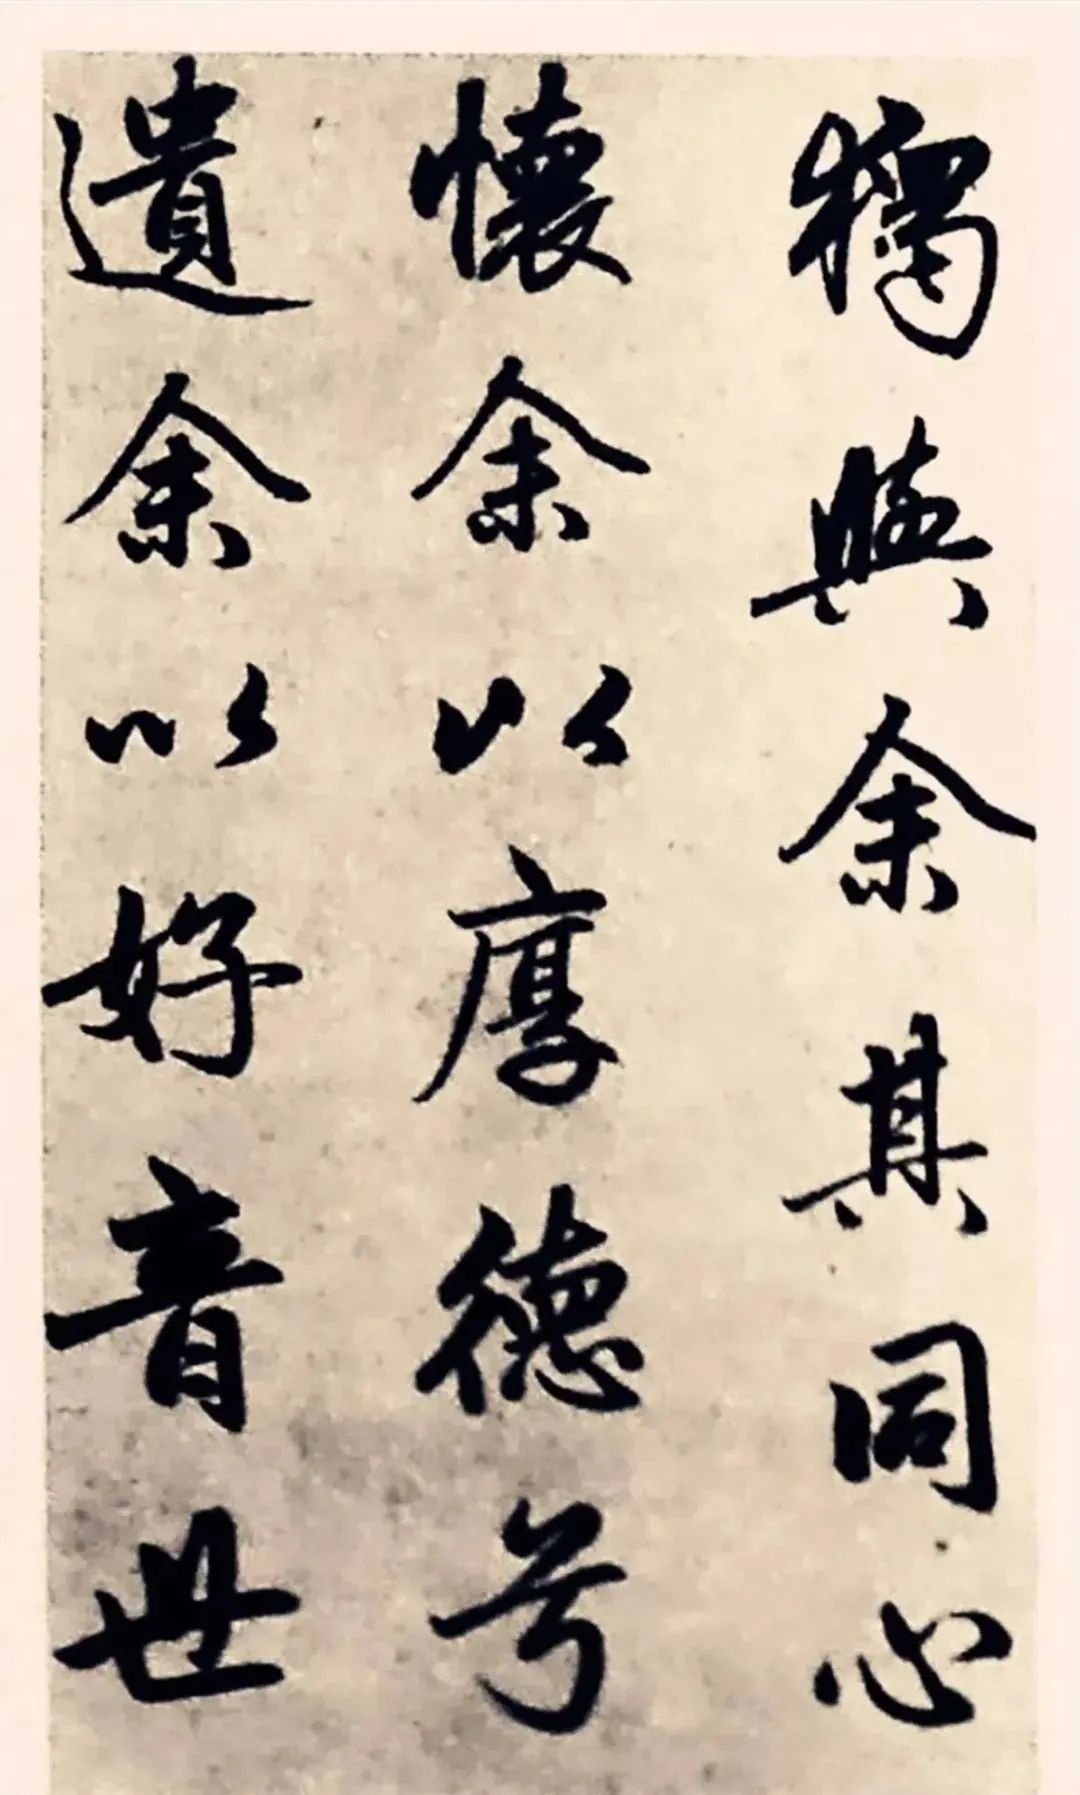 獨與余其同心
懷余以厚德兮
遺余以好音世